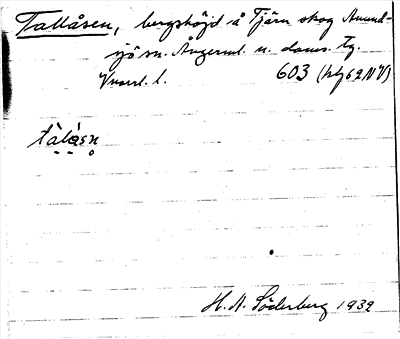 Tallåsen, bergshöjd å Tjärn skog Anund-
sjö sn. Ångerml. n. doms. Tg.
Vnorrl. l. 603 (hbg 62 NV)
tàlåsn
H. A. Söderberg 1932